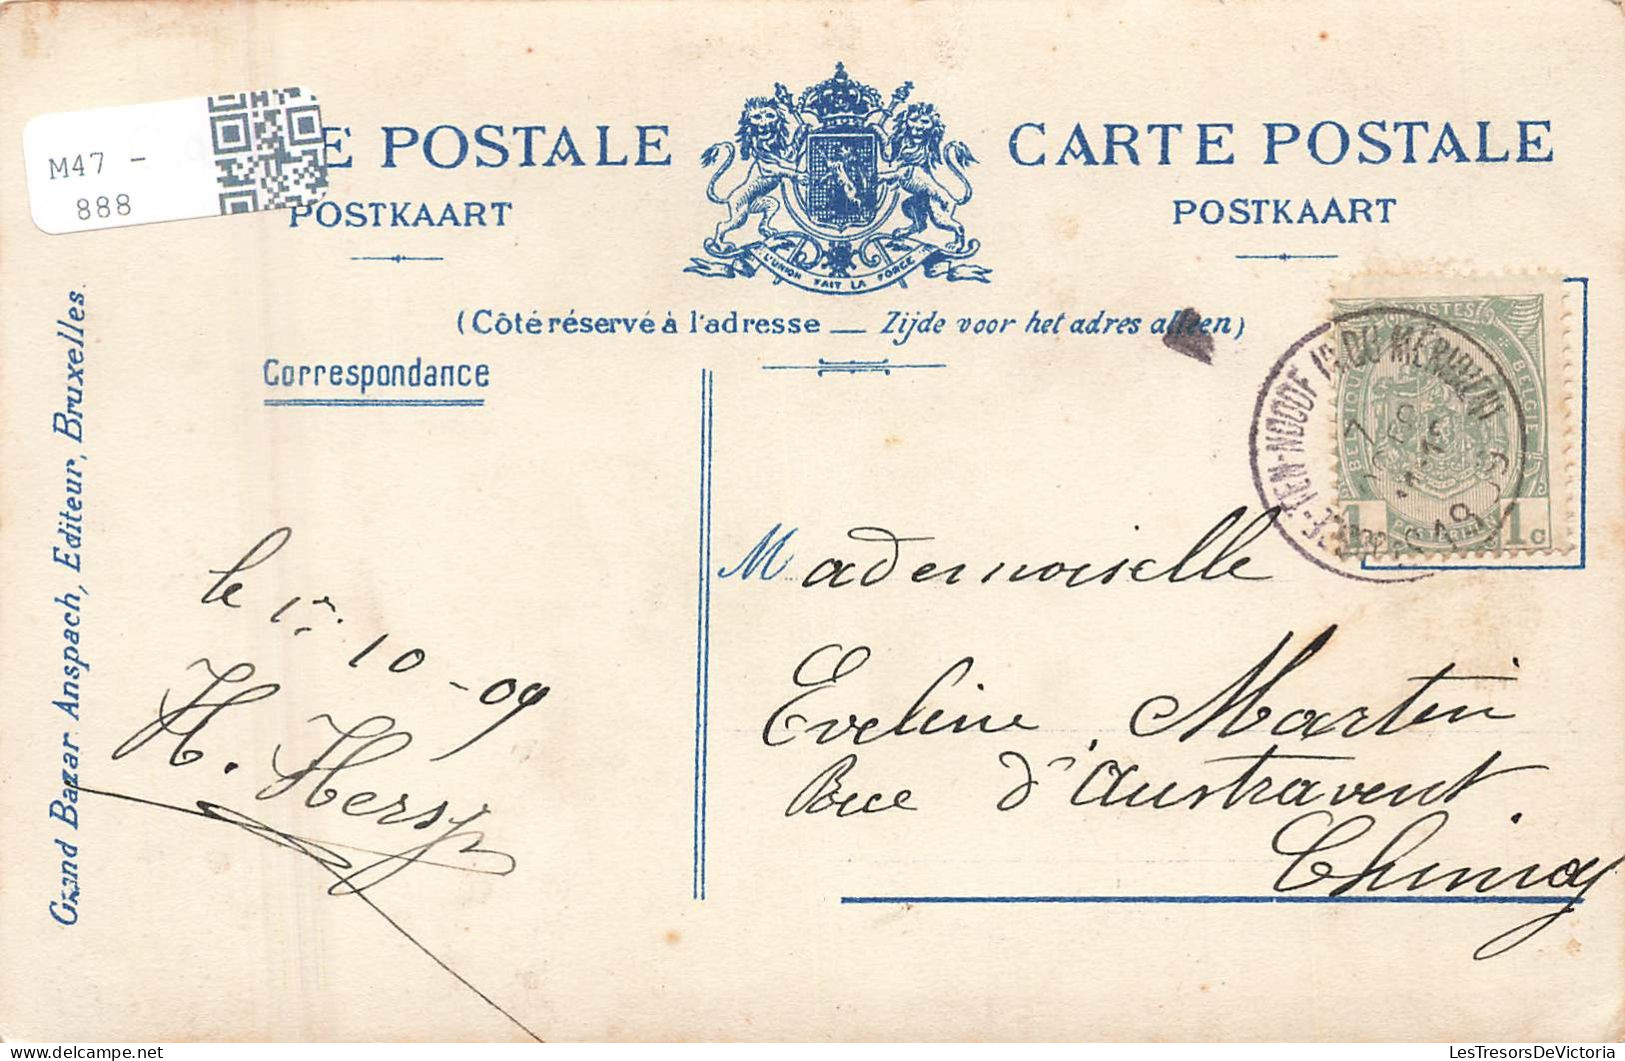 M47 -
888
E POSTALE
POSTKAART
CARTE POSTALE
POSTKAART
L'UNION FAIT LA FORCE
(Côté réservé à l'adresse — Zijde voor het adres alleen)
Correspondance
Grand Bazar Anspach, Editeur, Bruxelles.
POSTES
BELGIQUE
BELGIE
1c
1c
-TEN-NOODE (R. DU MÉRIDIEN)
le 1er 10 - 09
H. Hersy
Mademoiselle
Eveline Martin
Rue d'Austravent.
Chimay
LesTresorsDeVictoria